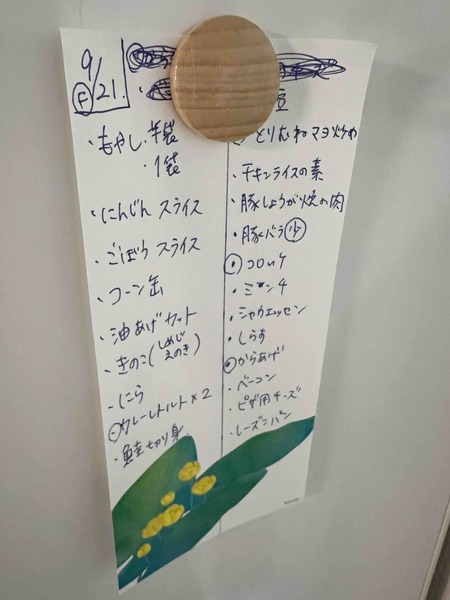 9/21.
F
・もやし、半袋
・1袋
・にんじん スライス
・ごぼう スライス
・コーン缶
・油あげ カット
・きのこ(しめじ えのき)
・にら
・カレーレトルト×2
・鮭切り身
豆
・とりむねマヨ炒め
・チキンライスの素
・豚しょうが焼の肉
・豚バラ 少
・コロッケ
・ミンチ
・シャウエッセン
・しらす
・からあげ
・ベーコン
・ピザ用チーズ
・レーズンパン